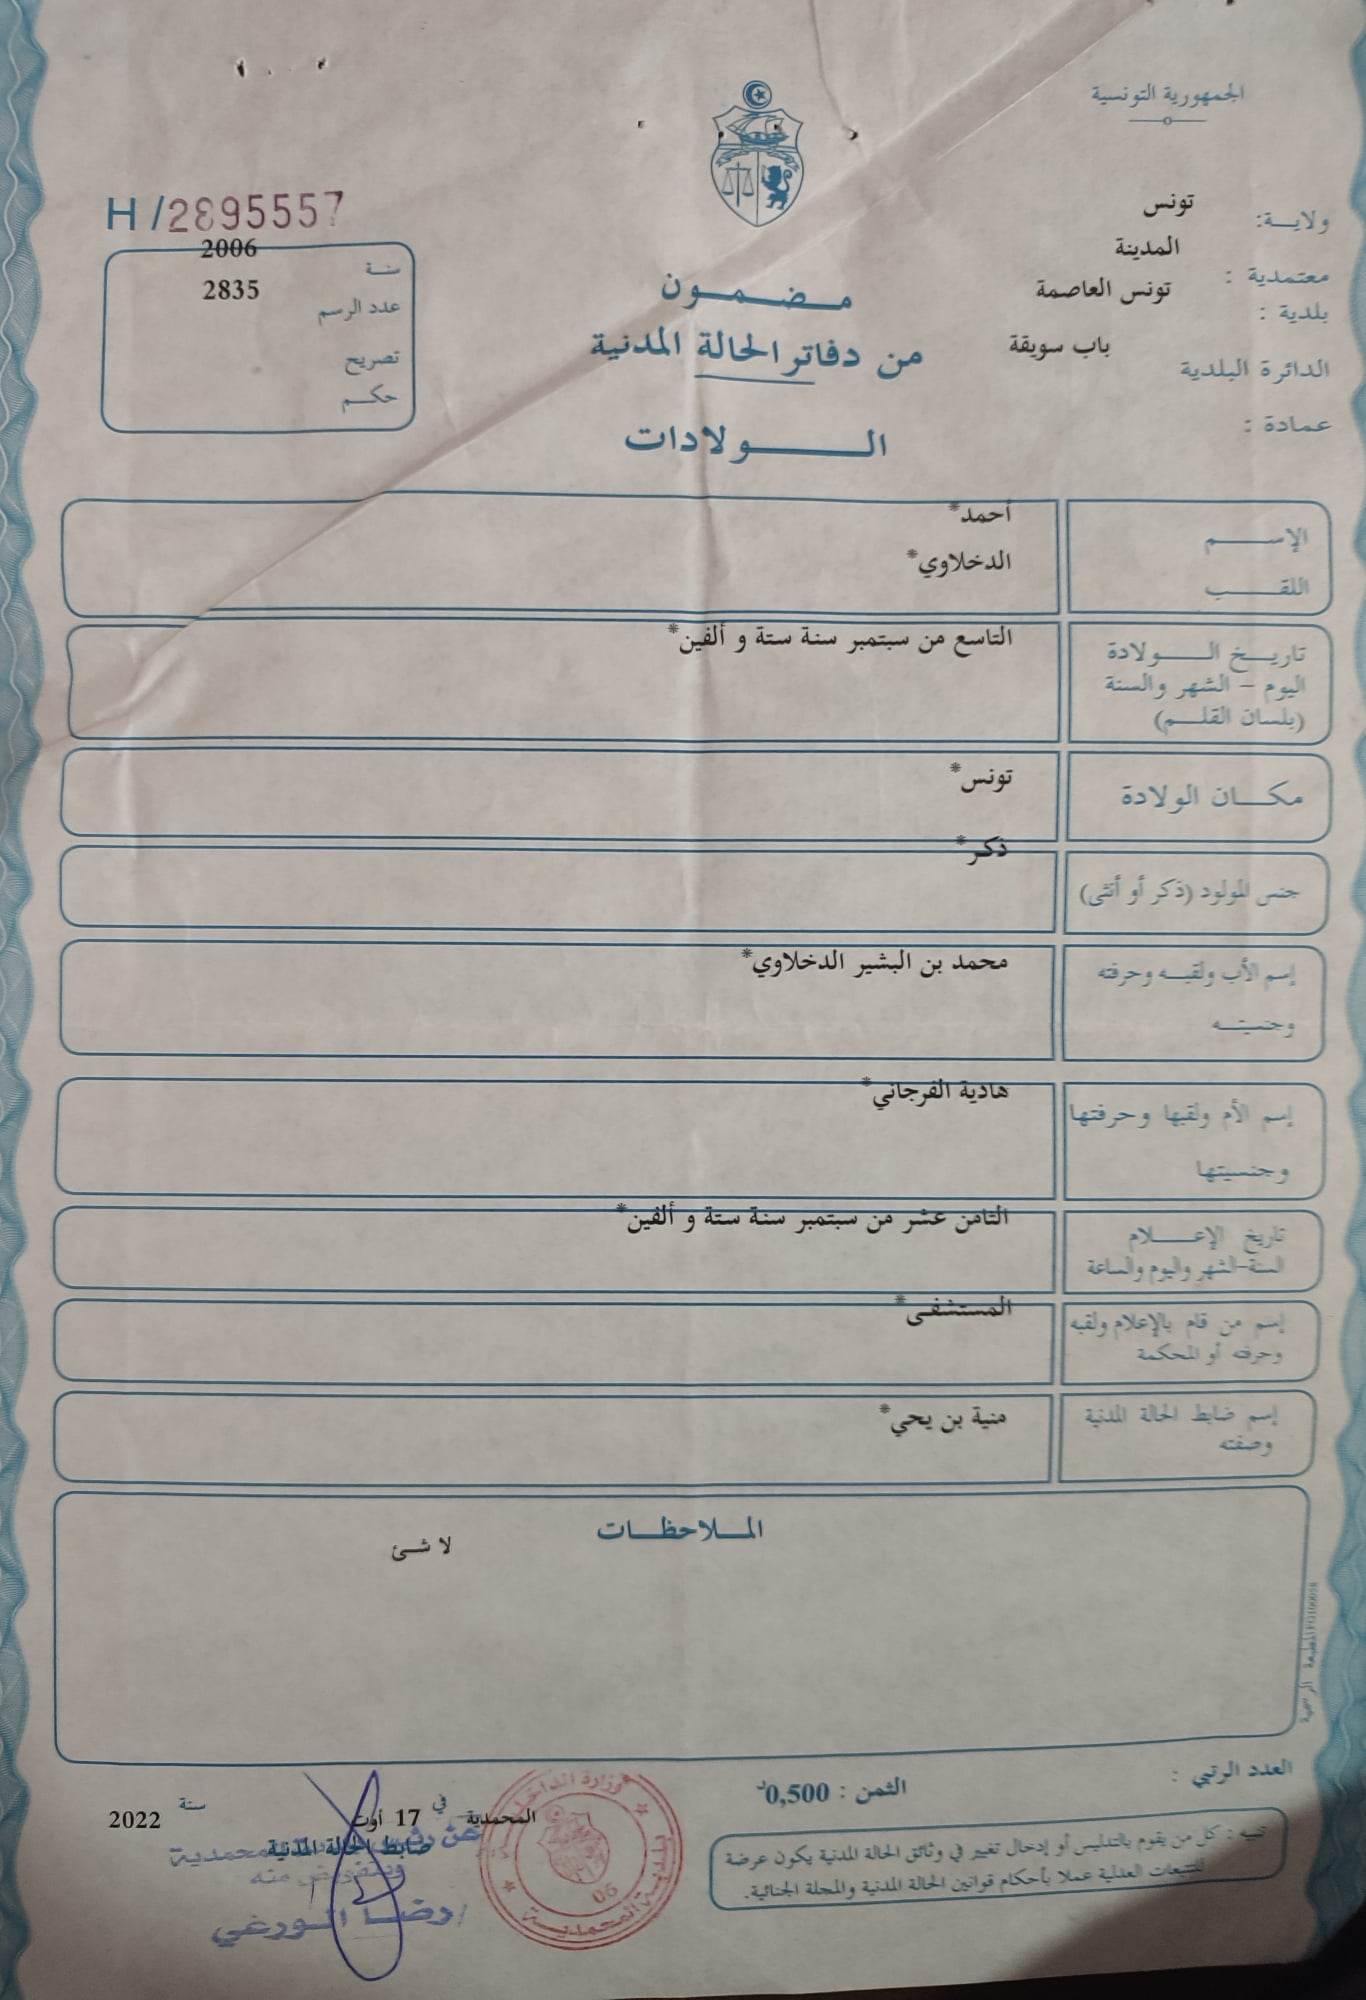 الجمهورية التونسية
ولايـــة: تونس
معتمدية : المدينة
بلدية : تونس العاصمة
الدائرة البلدية باب سويقة
عمادة :
H/2895557
سنـة 2006
عدد الرسم 2835
تصريح
حكـــم
مـــضـــمـــون
من دفاتر الحالة المدنية
الـــــــولادات
الإســــــم أحمد*
اللقـــــب الدخلاوي*
تاريـــخ الـــــولادة التاسع من سبتمبر سنة ستة و ألفين*
اليوم - الشهر والسنة
(بلسان القلـــم)
مكـــان الولادة تونس*
جنس المولود (ذكر أو أنثى) ذكر*
إسم الأب ولقبـــه وحرفته محمد بن البشير الدخلاوي*
وجنسيتـــه
إسم الأم ولقبها وحرفتها هادية الفرجاني*
وجنسيتها
تاريخ الإعـــــلام الثامن عشر من سبتمبر سنة ستة و ألفين*
السنة-الشهر واليوم والساعة
إسم من قام بالإعلام ولقبه المستشفى*
وحرفته أو المحكمة
إسم ضابط الحالة المدنية منية بن يحي*
وصفته
المـــلاحظـــات
لا شئ
المطبعة الرسمية
العدد الرتبي :
الثمن : 0,500د
تنبيه : كل من يقوم بالتدليس أو إدخال تغيير في وثائق الحالة المدنية يكون عرضة
للتتبعات العدلية عملا بأحكام قوانين الحالة المدنية والمجلة الجنائية.
المحمدية في 17 أوت سنة 2022
ضابط الحالة المدنية
المحمدية
وبتفويض منه
رضـــا الـورغي
وزارة الداخلية
بلدية المحمديـــة
06